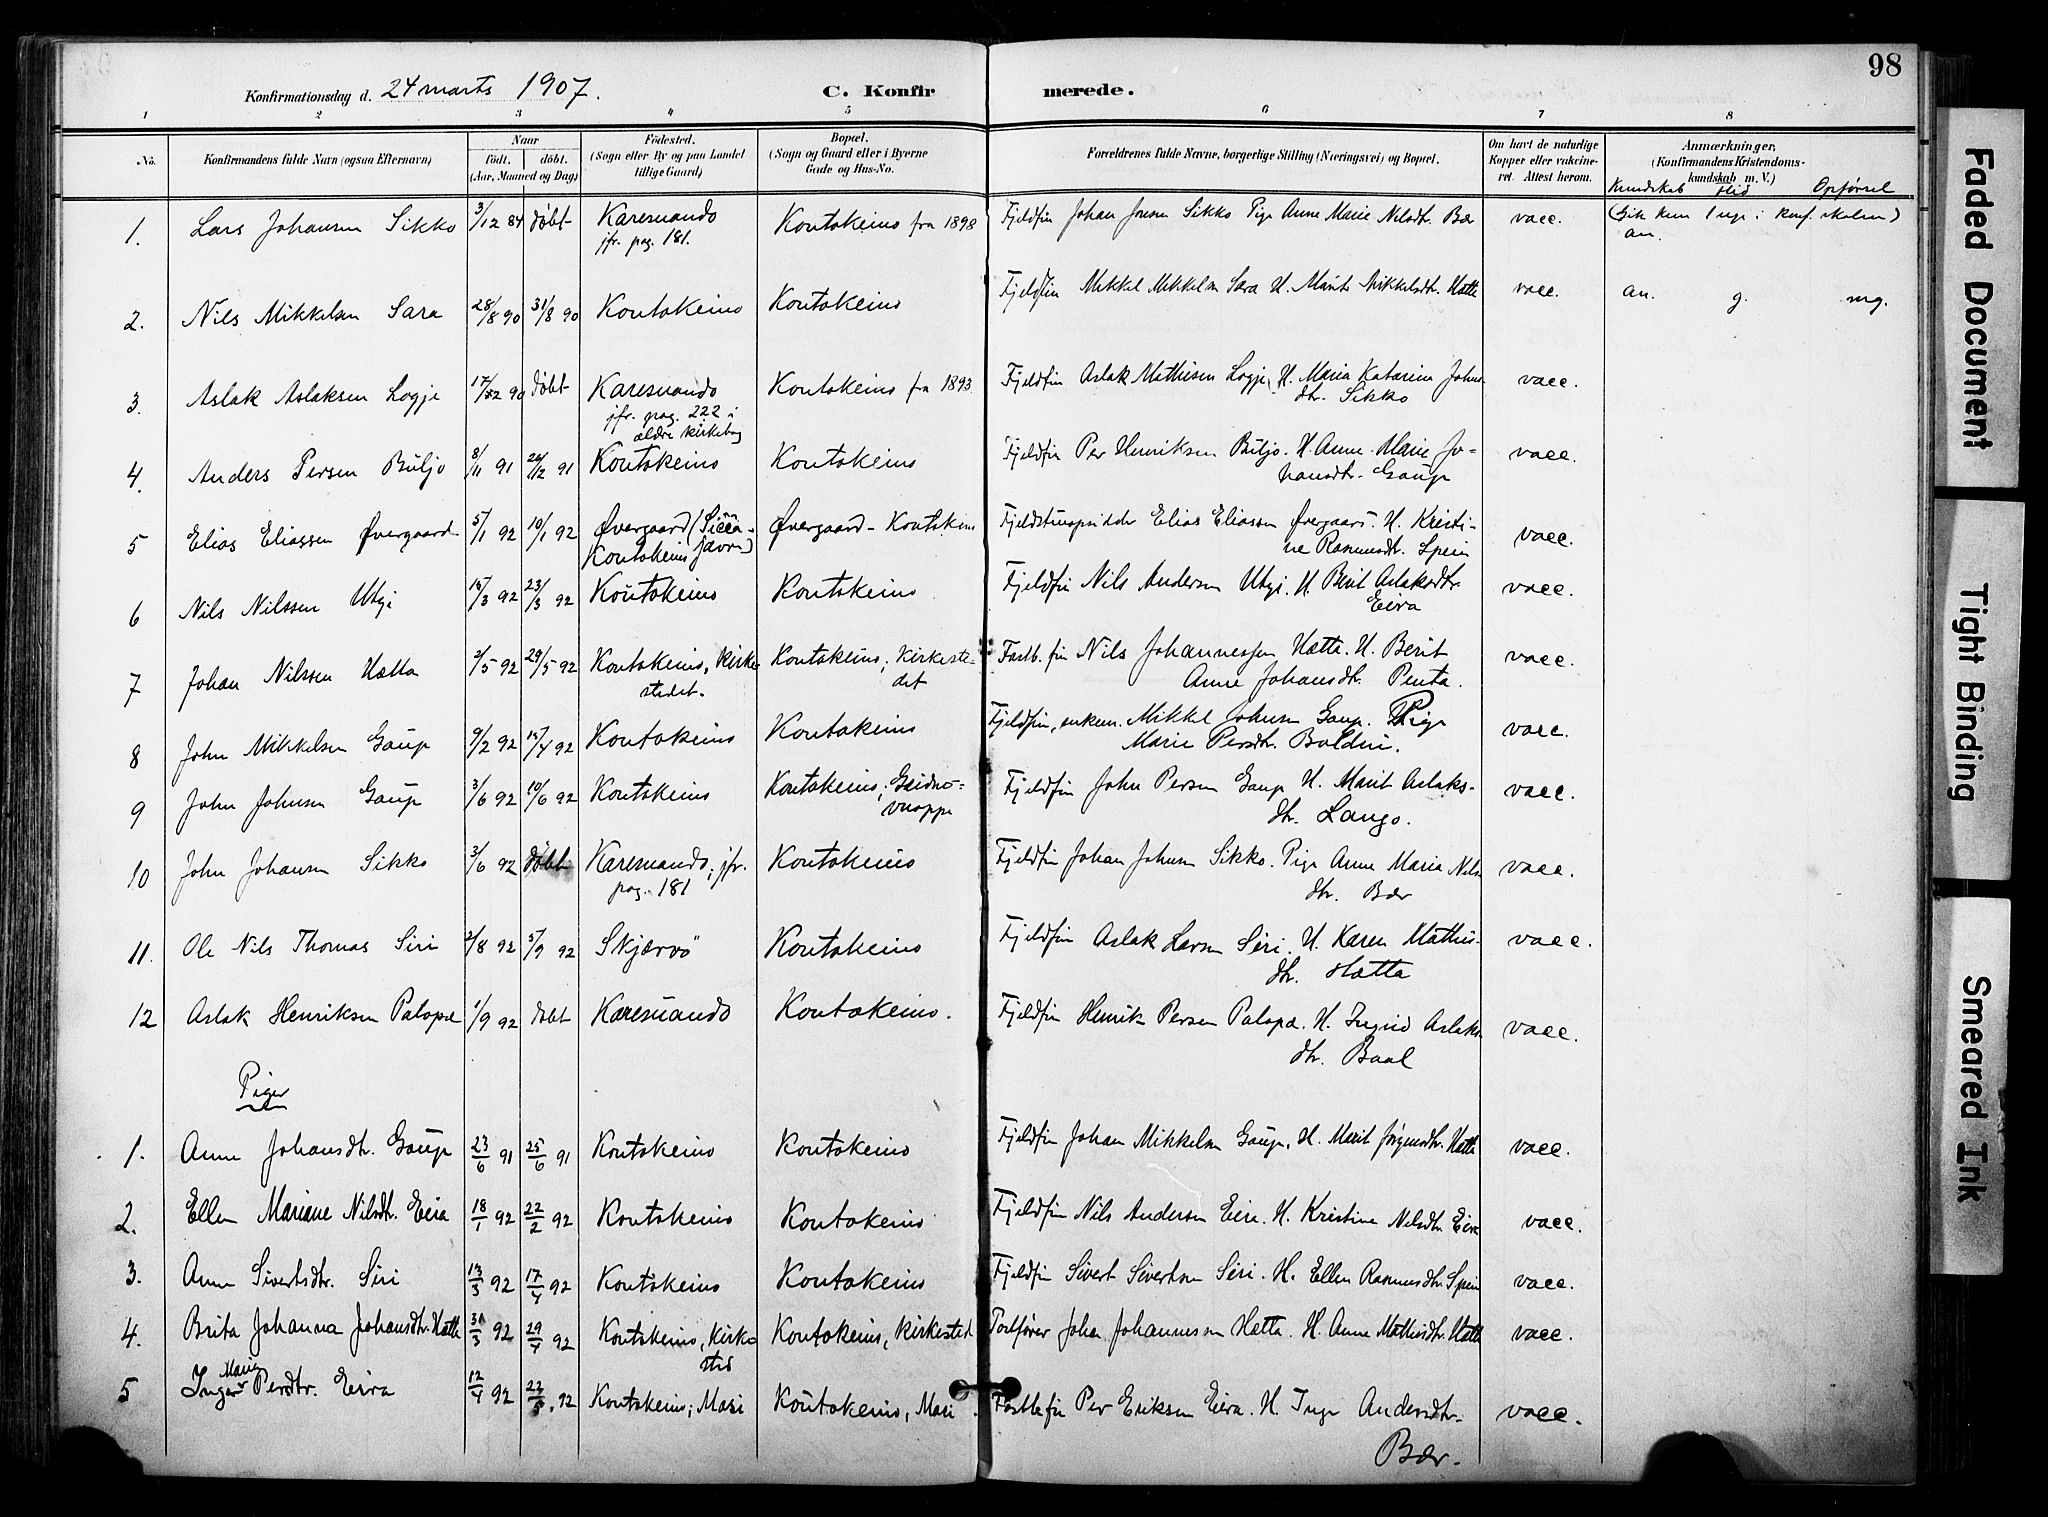 98
Konfirmationsdag d. 24 marts 1907.
C. Konfirmerede.
1 2 3 4 5 6 7 8
No. Konfirmandens fulde Navn (ogsaa Efternavn) Naar födt. döbt. (Aar, Maaned og Dag) Födested. (Sogn eller By og paa Landet tillige Gaard) Bopæl. (Sogn og Gaard eller i Byerne Gade og Hus-No. Forældrenes fulde Navne, borgerlige Stilling (Næringsvei) og Bopæl. Om havt de naturlige Kopper eller vakcineret. Attest herom. Anmærkninger, (Konfirmandens Kristendomskundskab m. V.)
Kundskab flid Opførsel
1. Lars Johansen Sikko 3/12 84 döbt Karesuando Koutokeino fra 1898 Fjeldfin Johan Johnsen Sikko Pige Anne Marie Nilsdtr. Bær vacc. (Gik kun 1 uge i konf. skolen)
jfr. pag. 181. an.
2. Nils Mikkelsen Sara 28/8 90 31/8 90 Koutokeino Koutokeino Fjeldfin Mikkel Mikkelsen Sara H. Marit Mikkelsdtr. Hætta vacc. an. g. mg.
3. Aslak Aslaksen Logje 17/12 90 döbt Karesuando Koutokeino fra 1893 Fjeldfin Aslak Mathisen Logje, H. Maria Katarina Johns- vacc.
jfr. pag. 222 i dtr. Sikko
ældre kirkebog
4. Anders Persen Buljo 8/11 91 26/12 91 Koutokeino Koutokeino Fjeldfin Per Henriksen Buljo. H. Anne Marie Jo- vacc.
hansdtr. Gaup
5 Elias Eliassen Øvergaard 5/1 92 10/1 92 Øvergaard (Siccajavre) Øvergaard - Koutokeino Elias Eliassen Øvergaard. H. Kristi- vacc.
Koutokeino ne Rasmusdtr. Spein
6 Nils Nilssen Utsi 15/3 92 23/3 92 Koutokeino Koutokeino Fjeldfin Nils Andersen Utsi. H. Berit Aslaksdtr. vacc.
Eira
7 Johan Nilssen Hætta 2/5 92 29/5 92 Koutokeino, Kirke- Koutokeino, Kirkeste- Fastb. fin Nils Johannessen Hætta. H. Berit vacc.
stedet. det Anne Johansdtr. Penta.
8 John Mikkelsen Gaup 9/2 92 15/4 92 Koutokeino Koutokeino Fjeldfin, enkem. Mikkel Johnsen Gaup. Pige vacc.
Marie Persdtr. Boldin.
9 John Johnsen Gaup 3/6 92 10/6 92 Koutokeino Koutokeino, Gaidno- Fjeldfin John Persen Gaup H. Marit Aslaks- vacc.
vuoppe dtr. Lango.
10 John Johansen Sikko 3/6 92 döbt Karesuando, jfr. Koutokeino Fjeldfin Johan Johnsen Sikko. Pige Anne Maria Nils- vacc.
pag. 181 dtr. Bær
11. Ole Nils Thomas Siri 2/8 92 5/9 92 Skjærvö Koutokeino Fjeldfin Aslak Larsen Siri. H. Karen Mathis- vacc.
dtr. Hætta
12 Aslak Henriksen Palopæ 1/9 92 döbt Karesuando Koutokeino. Fjeldfin Henrik Persen Palopæ. H. Ingrid Aslaks- vacc.
dtr. Baal
Piger
1. Anne Johansdtr. Gaup 23/6 91 25/6 91 Koutokeino Koutokeino Fjeldfin Johan Mikkelsen Gaup. H. Marit Jörgensdtr. Hætta vacc.
2. Ellen Mariane Nilsdtr. Eira 18/1 92 22/2 92 Koutokeino Koutokeino Fjeldfin Nils Andersen Eira. H. Kristine Nilsdtr. Eira vacc.
3. Anne Sivertsdtr. Siri 13/3 92 17/4 92 Koutokeino Koutokeino Fjeldfin Sivert Sivertsen Siri. H. Ellen Rasmusdtr. Spein vacc.
4. Brita Johanna Johansdtr. Hætta 31/3 92 29/4 92 Koutokeino, Kirke- Koutokeino, Kirkested Postfører Johan Johannessen Hætta. H. Anne Mathisdtr. Hætta vacc.
sted
5 Inger Marie Persdtr. Eira 12/4 92 22/5 92 Koutokeino, Masi Koutokeino, Masi. Fastb. fin Per Eriksen Eira. H. Inger Andersdtr. vacc.
Bær.
Faded Document
Tight Binding
Smeared Ink